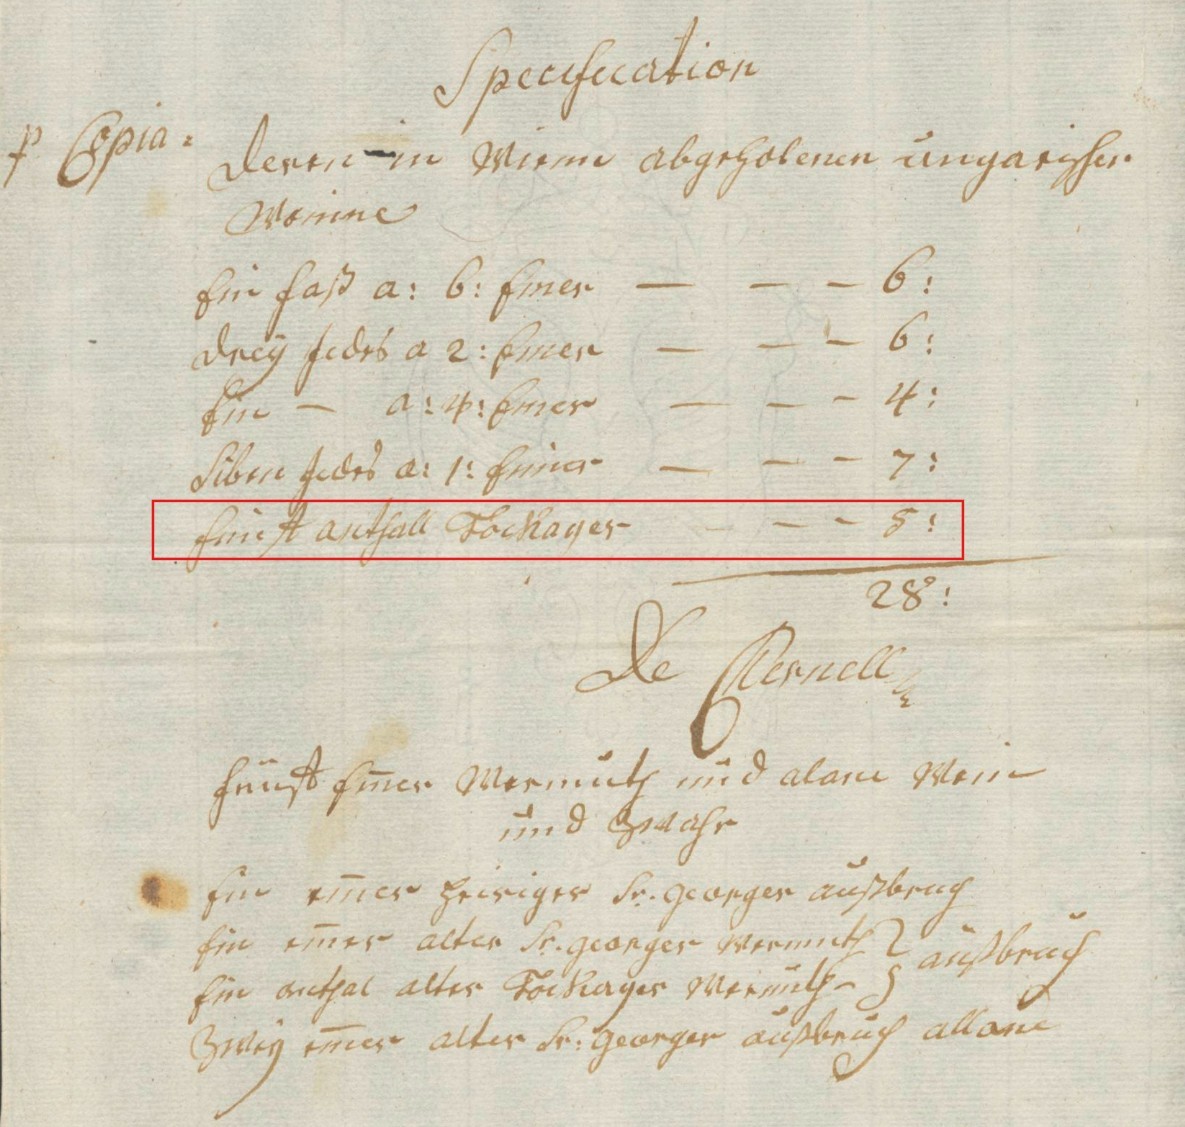 Specification
p Copia: Deren in Wienn abgehobenen ungarischen
Weinne
Ein Faß a: 6: Emer — — — 6:
Drey Jedes a 2: Emer — — — 6:
Ein — a: 4: Emer — — — 4:
Siben Jedes a: 1: Eimer — — — 7:
Fünff anthall Tockayer — — — 5:
28:
De
Fünff Emer Wermuth und alane Wein
und Zwahr
Ein emer heiriger St. Georger außbruch
Ein emer alter St. georger wermuth
Ein anthal alter Tockayer Wermuth – außbruch
Zwey emer alter St: Georger außbruch allane